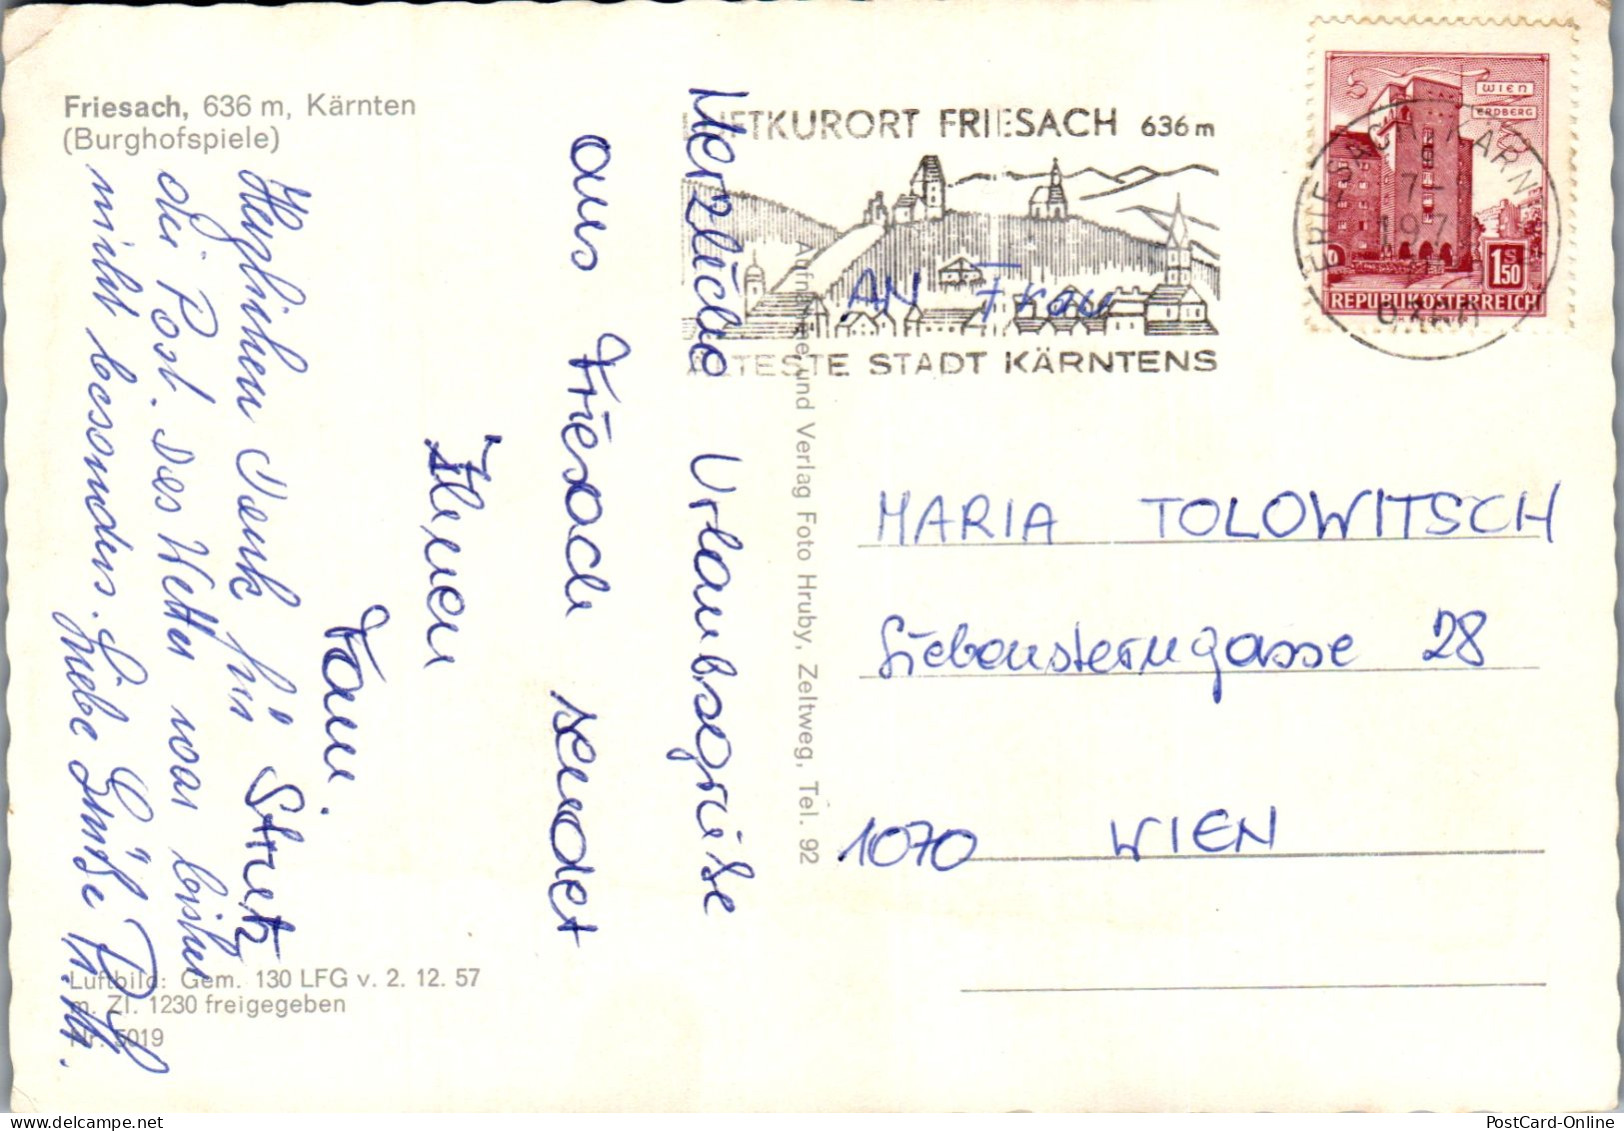 Friesach, 636 m, Kärnten
(Burghofspiele)
LUFTKURORT FRIESACH 636 m
ÄLTESTE STADT KÄRNTENS
WIEN
ERDBERG
S
1.50
REPUBLIK ÖSTERREICH
FRIESACH, KÄRNTEN
AN Frau
MARIA TOLOWITSCH
Siebensterngasse 28
1070 WIEN
Herzliche Urlaubsgrüße
aus Friesach sendet
Ihnen
Fam.
Stretz
Herzlichen Dank für
die Post. Das Wetter war bisher
nicht besonders. Liebe Grüße
Aufnahme und Verlag Foto Hruby, Zeltweg, Tel. 92
Luftbild: Gem. 130 LFG v. 2. 12. 57
m. Zl. 1230 freigegeben
Nr. 5019
PostCard-Online